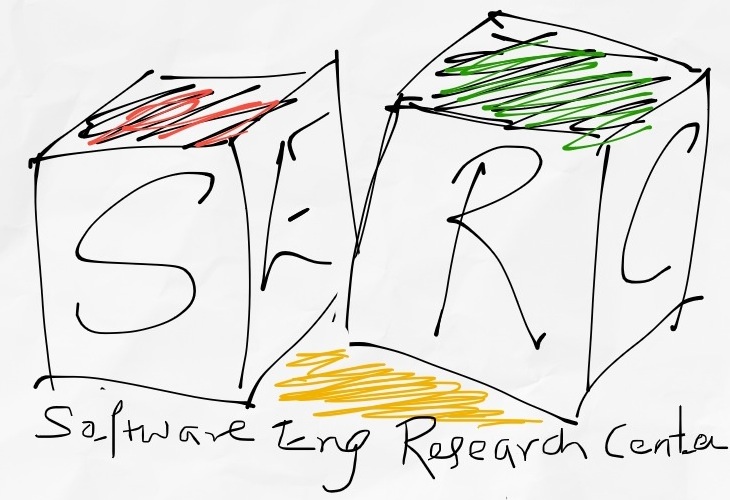 SERC
Software Eng Research Center